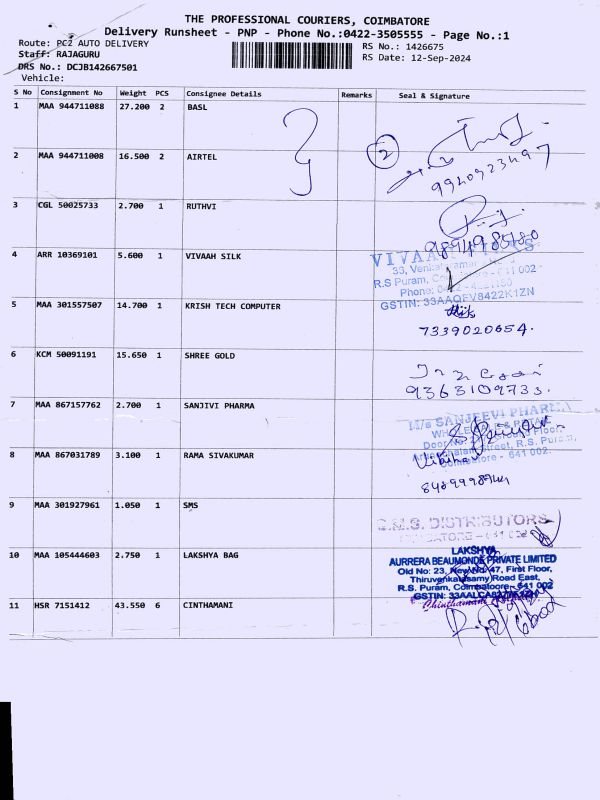 THE PROFESSIONAL COURIERS, COIMBATORE
Delivery Runsheet - PNP - Phone No.:0422-3505555 - Page No.:1
Route: PC2 AUTO DELIVERY
RS No.: 1426675
Staff: RAJAGURU
RS Date: 12-Sep-2024
DRS No.: DCJB142667501
Vehicle:
S No Consignment No Weight PCS Consignee Details Remarks Seal & Signature
1 MAA 944711088 27.200 2 BASL
2
2 MAA 944711008 16.500 2 AIRTEL
3 CGL 50025733 2.700 1 RUTHVI
4 ARR 10369101 5.600 1 VIVAAH SILK
33,
R.S Puram, 641 002
Phone:
GSTIN: 33AAQFV8422K1ZN
5 MAA 301557507 14.700 1 KRISH TECH COMPUTER
7339020654.
6 KCM 50091191 15.650 1 SHREE GOLD
9363109733.
7 MAA 867157762 2.700 1 SANJIVI PHARMA
M/s SANJEEVI PHARMA
Door Floor,
R.S. Puram,
Coimbatore - 641 002.
8 MAA 867031789 3.100 1 RAMA SIVAKUMAR
9 MAA 301927961 1.050 1 SMS
S.M.S. DISTRIBUTORS
10 MAA 105444603 2.750 1 LAKSHYA BAG
LAKSHYA
AURRERA BEAUMONDE PRIVATE LIMITED
Old No: 23, New No: 47, First Floor,
Thiruvenkatasamy Road East,
R.S. Puram, Coimbatoore- 641 002
11 HSR 7151412 43.550 6 CINTHAMANI